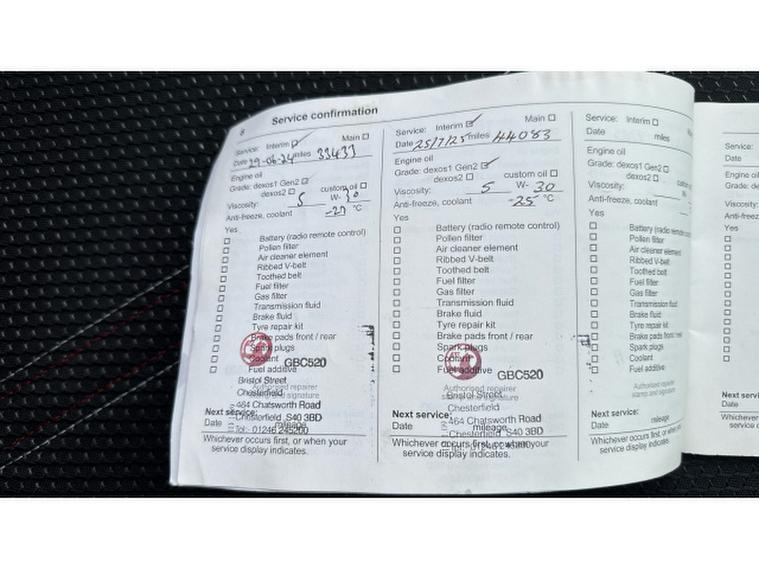 8 Service confirmation
Service: Interim ☑ Main ☐
Date 29-06-24 miles 33433
Engine oil
Grade: dexos1 Gen2 ☑
dexos2 ☐ custom oil ☐
Viscosity: 5 W- 30
Anti-freeze, coolant -27 °C
Yes
☐ Battery (radio remote control)
☐ Pollen filter
☐ Air cleaner element
☐ Ribbed V-belt
☐ Toothed belt
☐ Fuel filter
☐ Gas filter
☐ Transmission fluid
☐ Brake fluid
☐ Tyre repair kit
☐ Brake pads front / rear
☐ Spark plugs
☐ Coolant
☐ Fuel additive
GBC520
Authorised repairer
stamp and signature
Bristol Street
Chesterfield
464 Chatsworth Road
Chesterfield S40 3BD
Tel:- 01246 245200
Next service:
Date mileage
Whichever occurs first, or when your
service display indicates.
Service: Interim ☑ Main ☐
Date 25/7/25 miles 44083
Engine oil
Grade: dexos1 Gen2 ☑
dexos2 ☐ custom oil ☐
Viscosity: 5 W- 30
Anti-freeze, coolant -25 °C
Yes
☐ Battery (radio remote control)
☐ Pollen filter
☐ Air cleaner element
☐ Ribbed V-belt
☐ Toothed belt
☐ Fuel filter
☐ Gas filter
☐ Transmission fluid
☐ Brake fluid
☐ Tyre repair kit
☐ Brake pads front / rear
☐ Spark plugs
☐ Coolant
☐ Fuel additive
GBC520
Authorised repairer
stamp and signature
Bristol Street
Chesterfield
464 Chatsworth Road
Chesterfield S40 3BD
Next service:
Date mileage
Whichever occurs first, or when your
service display indicates.
Service: Interim ☐
Date miles
Engine oil
Grade: dexos1 Gen2 ☐
dexos2 ☐
Viscosity: W-
Anti-freeze, coolant
Yes
☐ Battery (radio remote
☐ Pollen filter
☐ Air cleaner element
☐ Ribbed V-belt
☐ Toothed belt
☐ Fuel filter
☐ Gas filter
☐ Transmission fluid
☐ Brake fluid
☐ Tyre repair kit
☐ Brake pads front
☐ Spark plugs
☐ Coolant
☐ Fuel additive
Authorised repair
stamp and signatu
Next service:
Date mileage
Whichever occurs first, or when
service display indicates.
Service:
Date
Engine oil
Grade:
Viscosity:
Anti-freeze
Yes
Next service
Date
Whichever
service